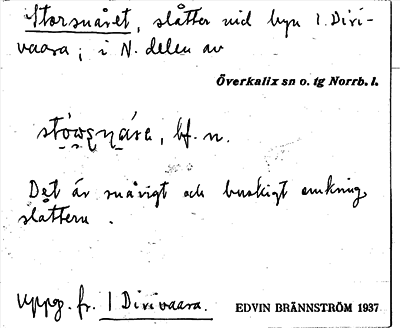 Storsnåret, slåtter vid byn 1. Divi-
vaara; i N. delen av
Överkalix sn o. tg Norrb. l.
bf. n.
Det är snårigt och buskigt omkring
slåttern.
Uppg. fr. 1 Divivaara.
EDVIN BRÄNNSTRÖM 1937